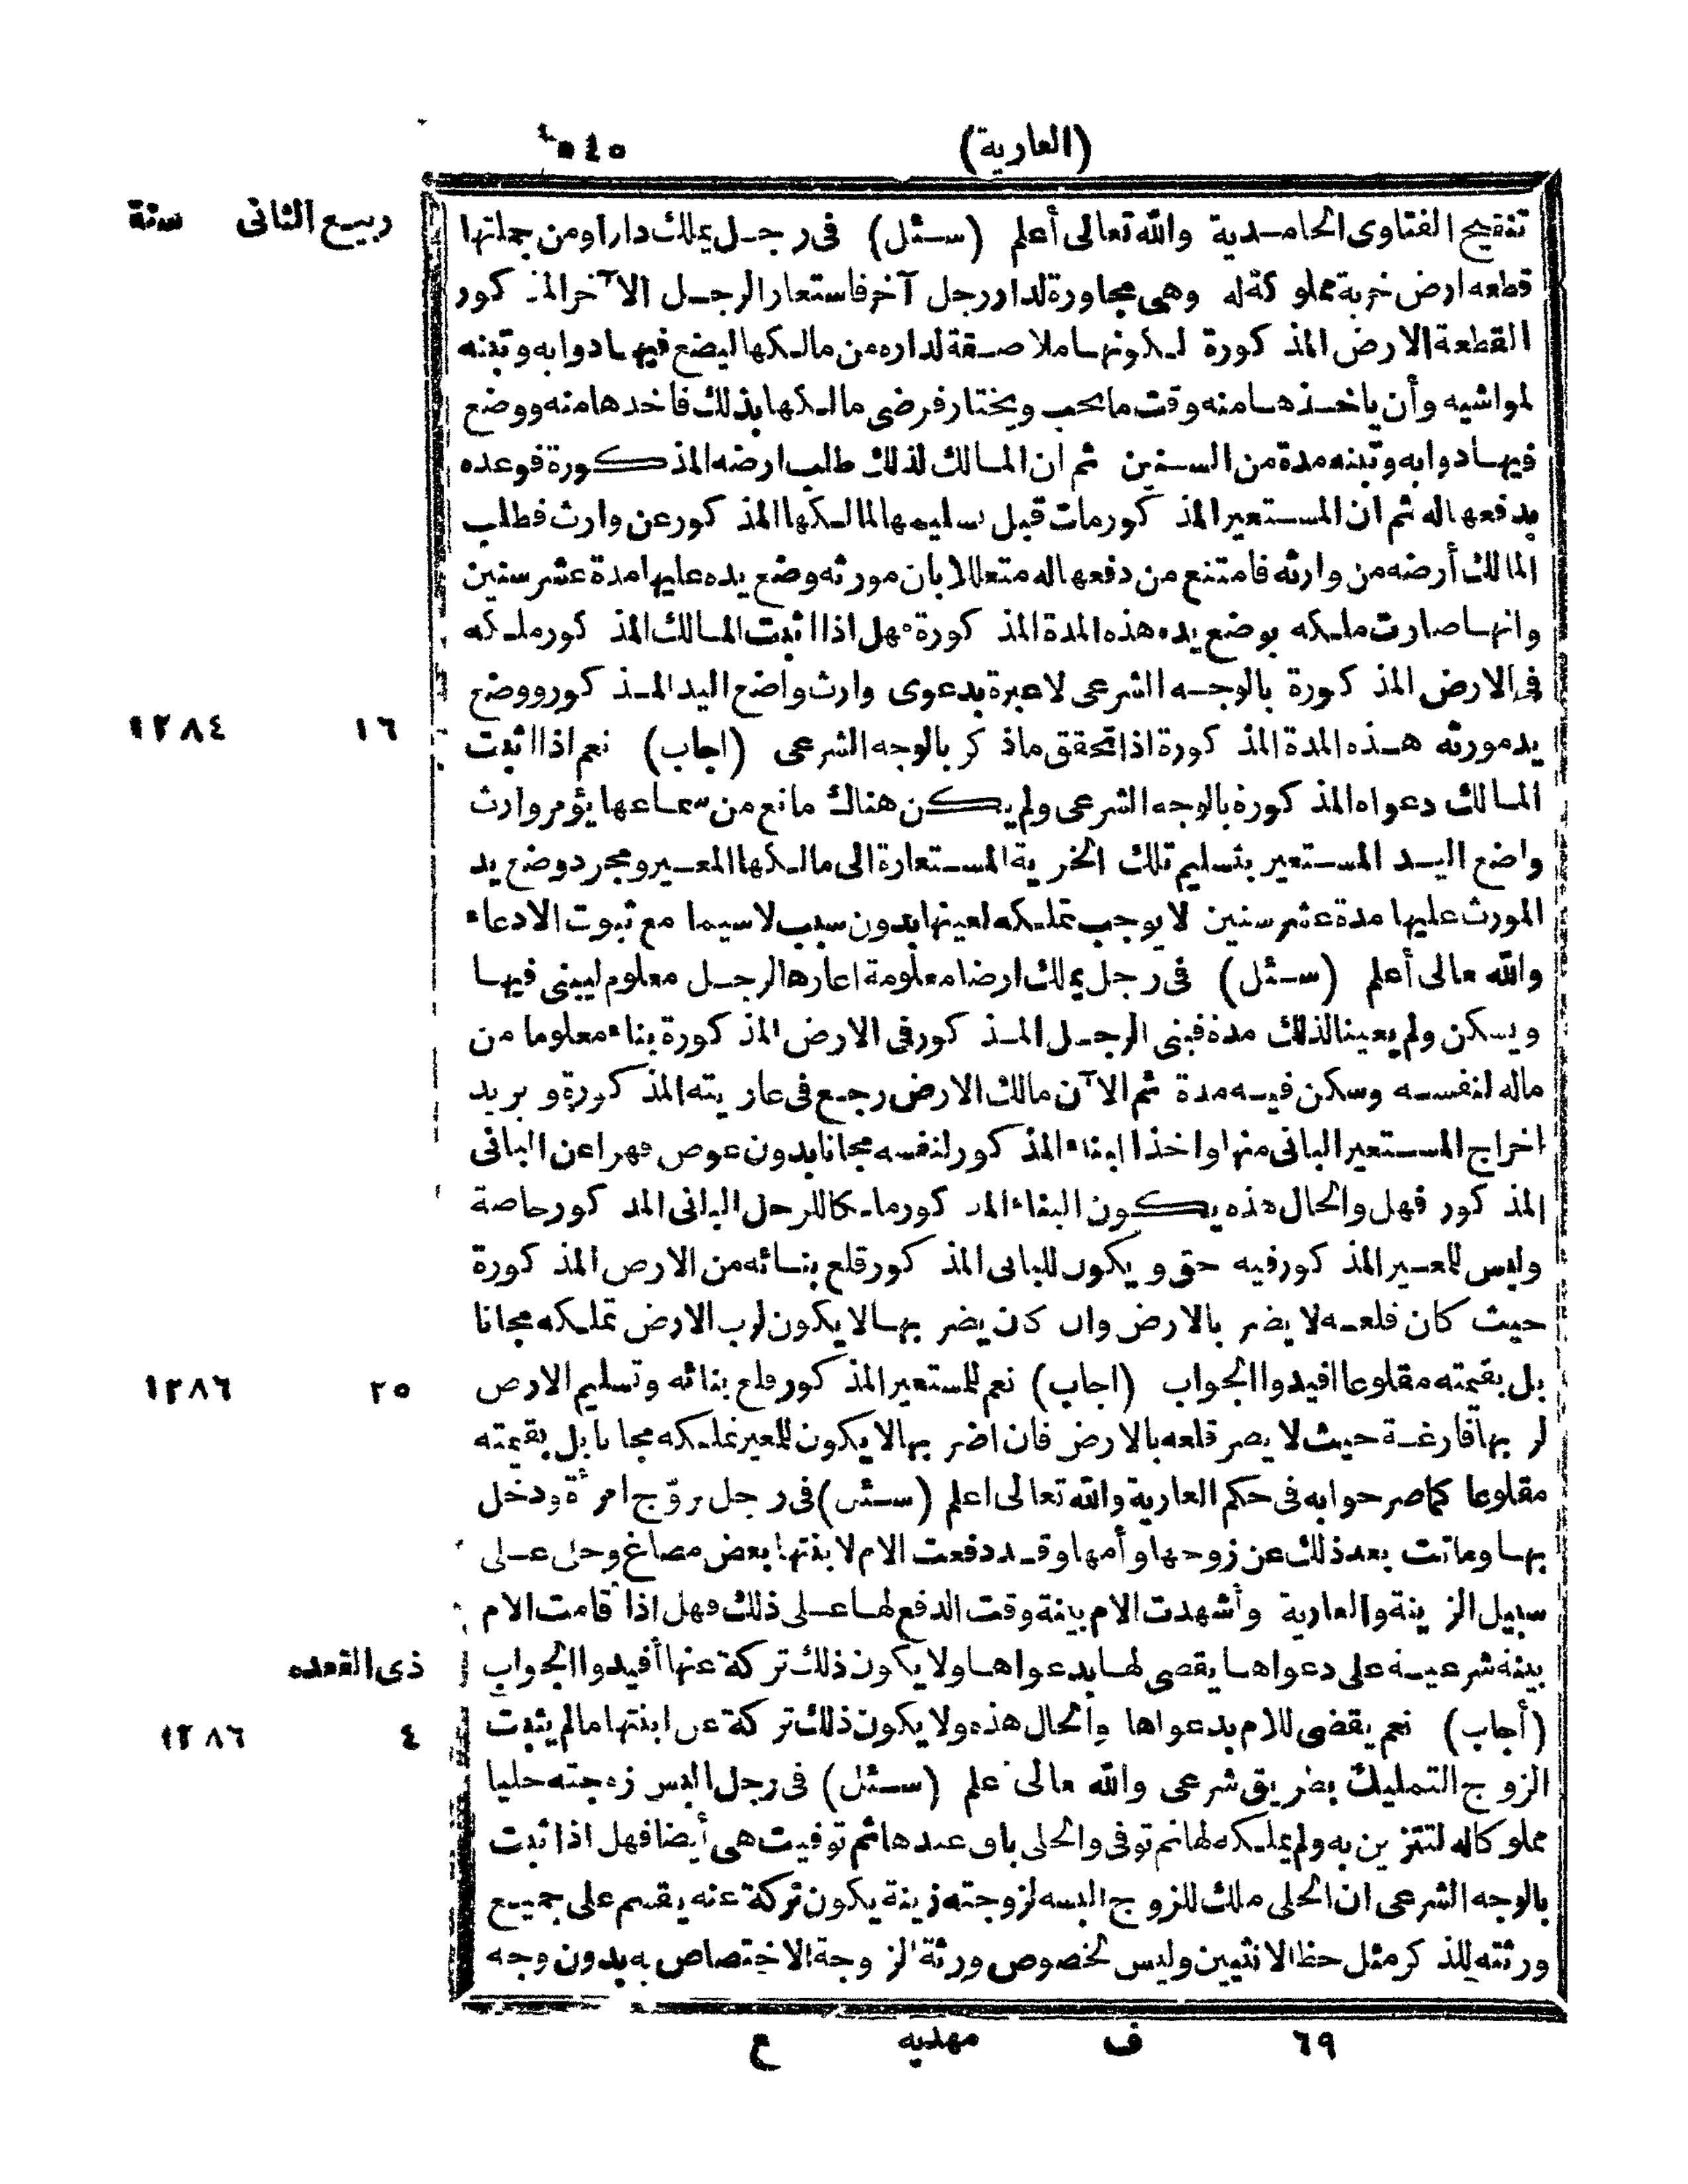 (العارية) ٥٤٥
ربيع الثانى سنة
تنقيح الفتاوى الحامدية والله تعالى أعلم (سئل) فى رجل يملك دارا ومن جملتها
قطعه ارض خربة مملوكة له وهى مجاورة لدار رجل آخر فاستعار الرجل الآخر المذكور
القطعة الارض المذكورة لكونها ملاصقة لداره من مالكها ليضع فيها دوابه وتبنه
لمواشيه وأن ياخذها منه وقت ما يحب ويختار فرضى مالكها بذلك فاخدها منه ووضع
فيها دوابه وتبنه مدة من السنين ثم ان المالك لذلك طلب ارضه المذكورة فوعده
بدفعها له ثم ان المستعير المذكور مات قبل تسليمها لمالكها المذكور عن وارث فطلب
المالك أرضه من وارثه فامتنع من دفعها له متعللا بان مورثه وضع يده عليها مدة عشر سنين
وانها صارت ملكه بوضع يده هذه المدة المذكورة فهل اذا اثبت المالك المذكور ملكه
فى الارض المذكورة بالوجه الشرعى لا عبرة بدعوى وارث واضع اليد المذكور ووضع
يد مورثه هذه المدة المذكورة اذا تحقق ماذكر بالوجه الشرعى (اجاب) نعم اذا اثبت
١٦ ١٢٨٤
المالك دعواه المذكورة بالوجه الشرعى ولم يكن هناك مانع من سماعها يؤمر وارث
واضع اليد المستعير بتسليم تلك الخربة المستعارة الى مالكها المعير ومجرد وضع يد
المورث عليها مدة عشر سنين لا يوجب تملكه لعينها بدون سبب لا سيما مع ثبوت الادعاء
والله تعالى أعلم (سئل) فى رجل يملك ارضا معلومة اعارها لرجل معلوم ليبنى فيها
ويسكن ولم يعينا لذلك مدة فبنى الرجل المذكور فى الارض المذكورة بناء معلوما من
ماله لنفسه وسكن فيه مدة ثم الآن مالك الارض رجع فى عاريته المذكورة ويريد
اخراج المستعير البانى منها واخذ البناء المذكور لنفسه مجانا بدون عوض قهرا عن البانى
المذكور فهل والحال هذه يكون البناء المذكور ملكا للرجل البانى المذكور خاصة
وليس للمعير المذكور فيه حق ويكون للبانى المذكور قلع بنائه من الارض المذكورة
حيث كان قلعه لا يضر بالارض وان كان يضر بها لا يكون لرب الارض تملكه مجانا
بل بقيمته مقلوعا افيدوا الجواب (اجاب) نعم للمستعير المذكور قلع بنائه وتسليم الارض
٢٥ ١٢٨٦
لربها فارغة حيث لا يضر قلعه بالارض فان اضر بها لا يكون للمعير تملكه مجانا بل بقيمته
مقلوعا كما صرحوا به فى حكم العارية والله تعالى اعلم (سئل) فى رجل تزوّج امرأة ودخل
بها وماتت بعد ذلك عن زوجها وأمها وقد دفعت الام لابنتها بعض مصاغ وحلى على
سبيل الزينة والعارية وأشهدت الام بينة وقت الدفع لها على ذلك فهل اذا أقامت الام
بينة شرعية على دعواها يقضى لها بدعواها ولا يكون ذلك تركة عنها أفيدوا الجواب
ذى القعده
(أجاب) نعم يقضى للام بدعواها والحال هذه ولا يكون ذلك تركة عن ابنتها مالم يثبت
٤ ١٢٨٦
الزوج التمليك بطريق شرعى والله تعالى أعلم (سئل) فى رجل البس زوجته حليا
مملوكا له لتتزين به ولم يملكه لها ثم توفى والحلى باق عندها ثم توفيت هى أيضا فهل اذا ثبت
بالوجه الشرعى ان الحلى ملك للزوج البسه لزوجته زينة يكون تركة عنه يقسم على جميع
ورثته للذكر مثل حظ الانثيين وليس لخصوص ورثة الزوجة الاختصاص به بدون وجه
٦٩ ف مهديه ع